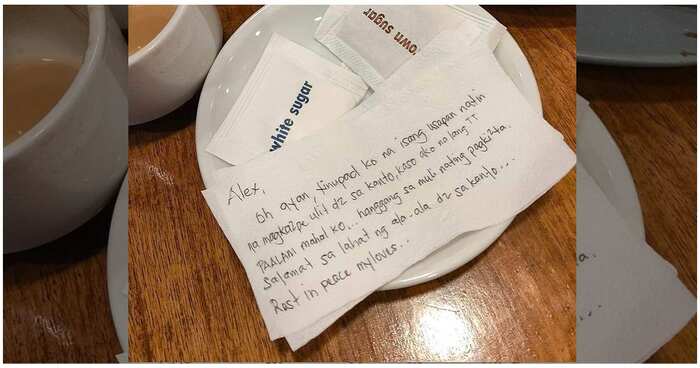 brown sugar
white sugar
Alex,
Oh ayan, finupad ko na isang usapan natin
na magkaiipe ulit d2 sa kanto, kaso ako na lang TT
PAALAM mahal ko... hanggang sa muli nating pagkikita.
Salamat sa lahat ng ala-ala d2 sa kanto...
Rest in peace myloves...